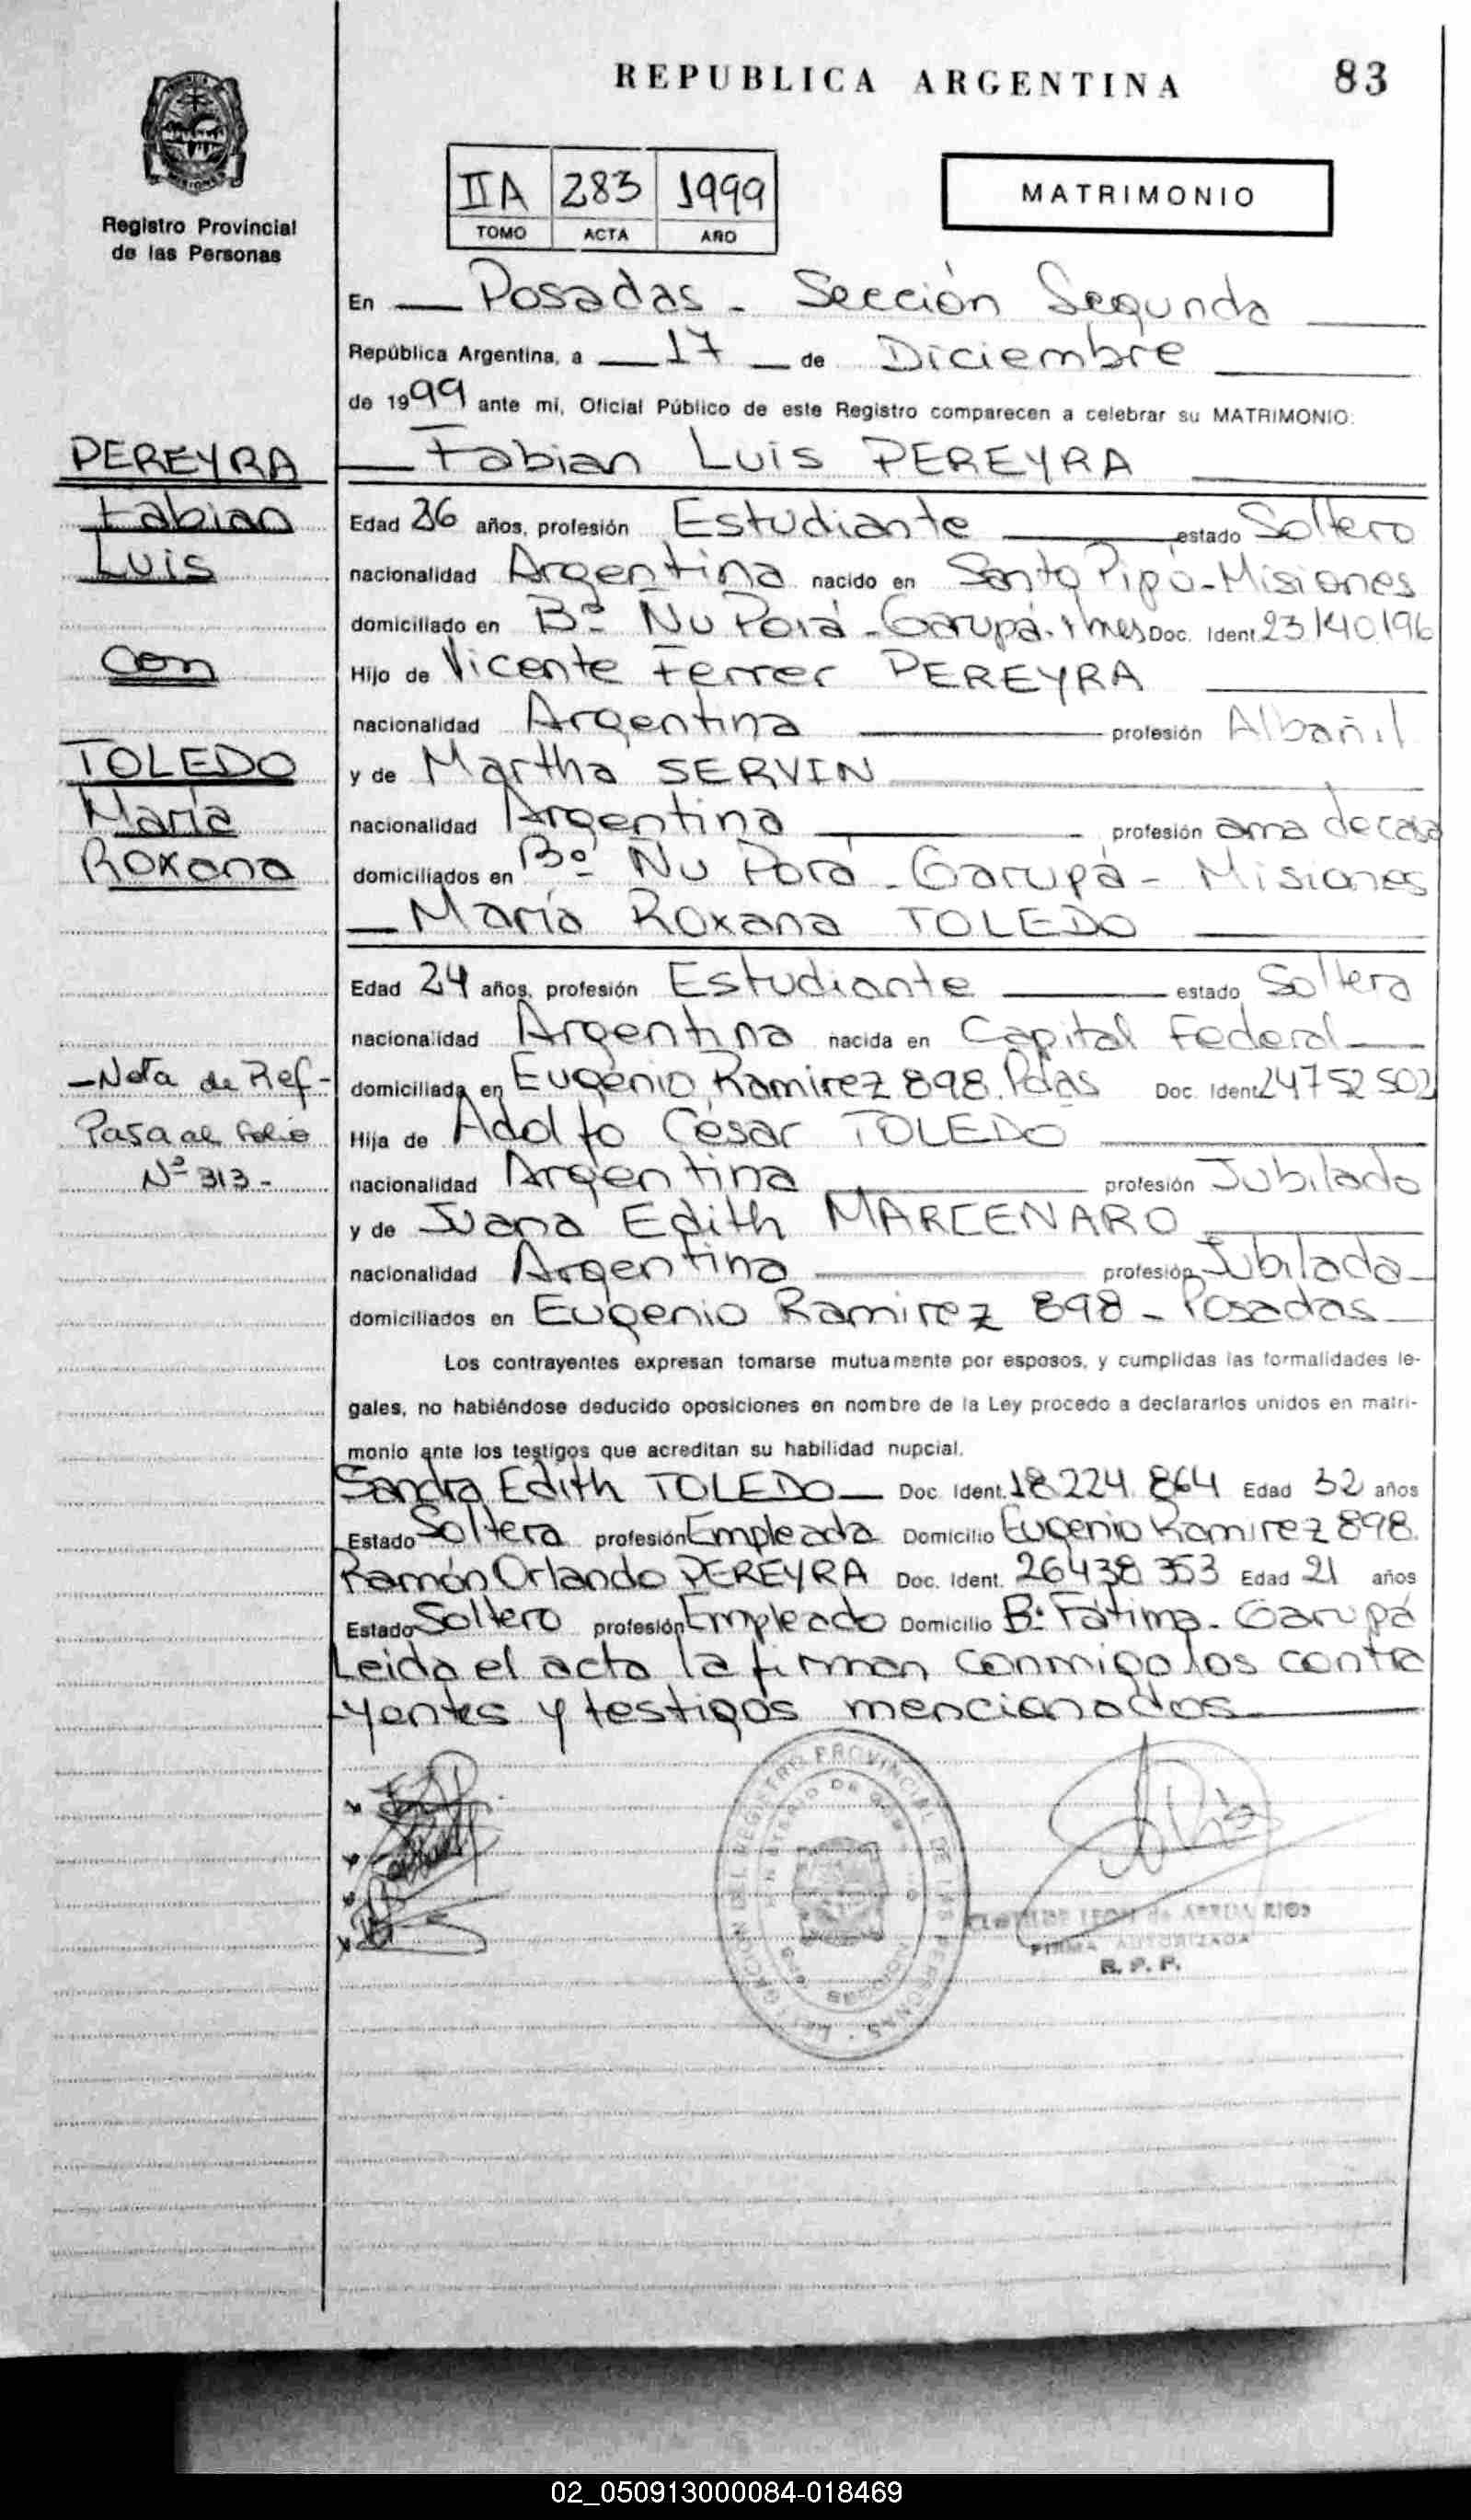 REPUBLICA ARGENTINA
83
Registro Provincial
de las Personas
IIA 283 1999
TOMO ACTA AÑO
MATRIMONIO
En Posadas - Sección Segunda
República Argentina, a 17 de Diciembre
de 1999 ante mi, Oficial Público de este Registro comparecen a celebrar su MATRIMONIO:
PEREYRA
Fabian
Luis
con
TOLEDO
María
Roxana
Fabian Luis PEREYRA
Edad 26 años, profesión Estudiante estado Soltero
nacionalidad Argentina nacido en Santo Pipó-Misiones
domiciliado en Bº Ñu Porá - Garupá. Mnes Doc. Ident. 23.140.196
Hijo de Vicente Ferrer PEREYRA
nacionalidad Argentina profesión Albañil
y de Martha SERVIN
nacionalidad Argentina profesión ama de casa
domiciliados en Bº Ñu Porá - Garupá - Misiones
María Roxana TOLEDO
Edad 24 años, profesión Estudiante estado Soltera
nacionalidad Argentina nacida en Capital Federal
domiciliada en Eugenio Ramirez 898. Pdas Doc. Ident. 24752502
Hija de Adolfo César TOLEDO
nacionalidad Argentina profesión Jubilado
y de Juana Edith MARCENARO
nacionalidad Argentina profesión Jubilada
domiciliados en Eugenio Ramirez 898 - Posadas
- Nota de Ref -
Pasa al folio
Nº 313 -
Los contrayentes expresan tomarse mutuamente por esposos, y cumplidas las formalidades le-
gales, no habiéndose deducido oposiciones en nombre de la Ley procedo a declararlos unidos en matri-
monio ante los testigos que acreditan su habilidad nupcial.
Sandra Edith TOLEDO Doc. Ident. 18.224.864 Edad 32 años
Estado Soltera profesión Empleada Domicilio Eugenio Ramirez 898.
Ramón Orlando PEREYRA Doc. Ident. 26438353 Edad 21 años
Estado Soltero profesión Empleado Domicilio Bº Fátima - Garupá
Leida el acta la firman conmigo los contra
yentes y testigos mencionados
FIRMA AUTORIZADA
R. P. P.
02_050913000084-018469